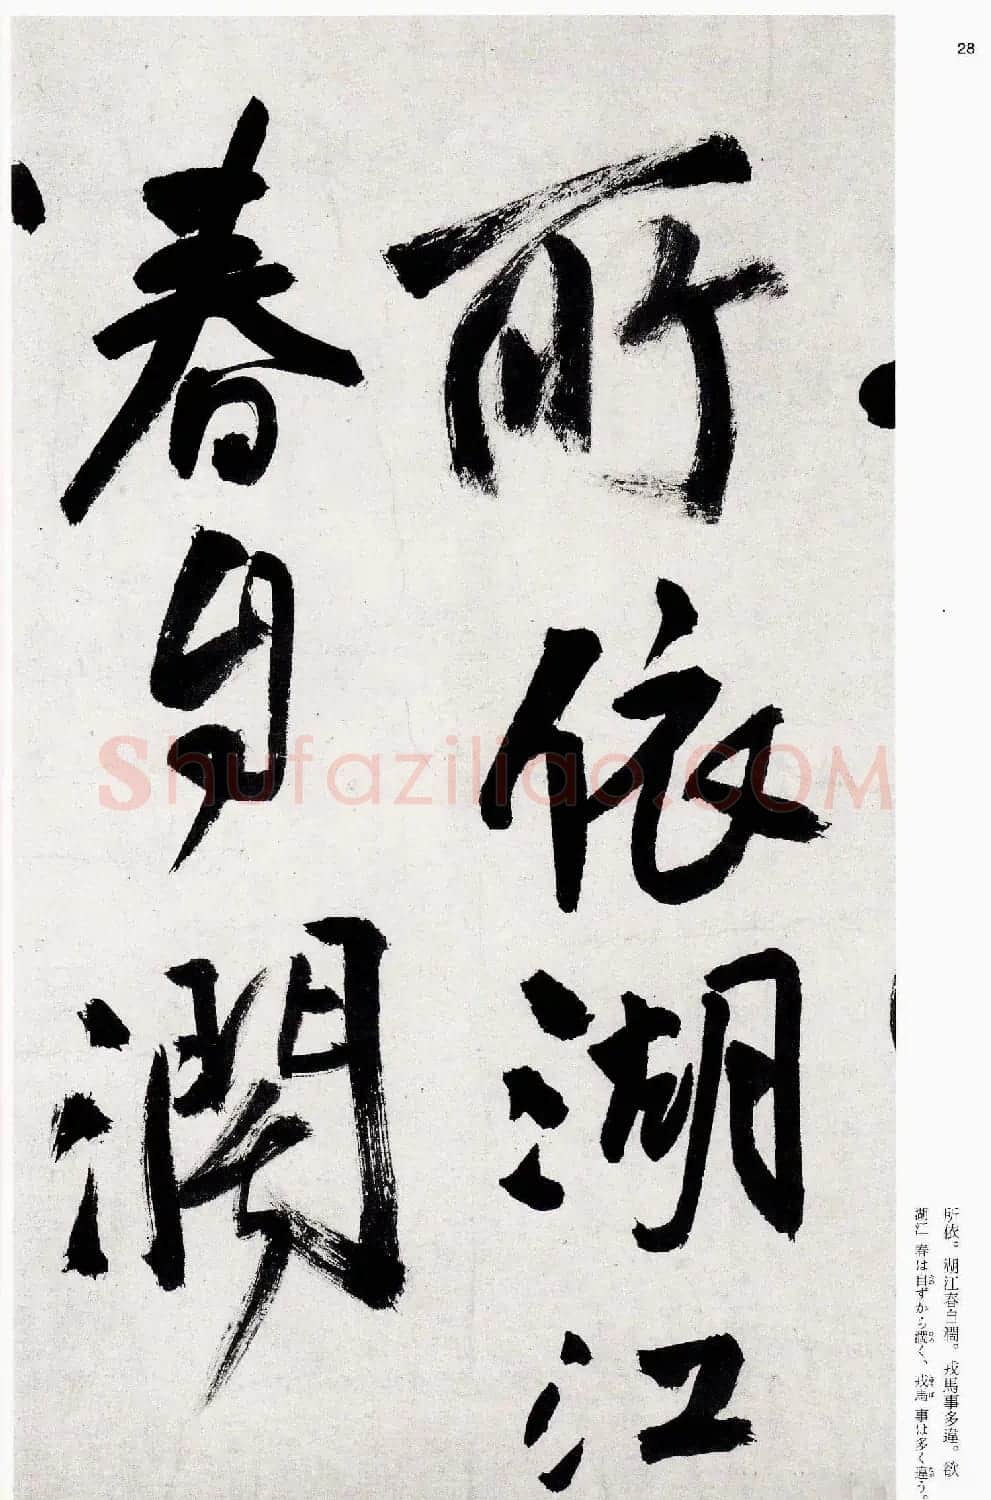 28
所依湖江
春自濶
所依。湖江春自濶。戎馬事多違。欲
湖江春は自ずから濶く、戎馬事は多く違う。
Shufaziliao.COM